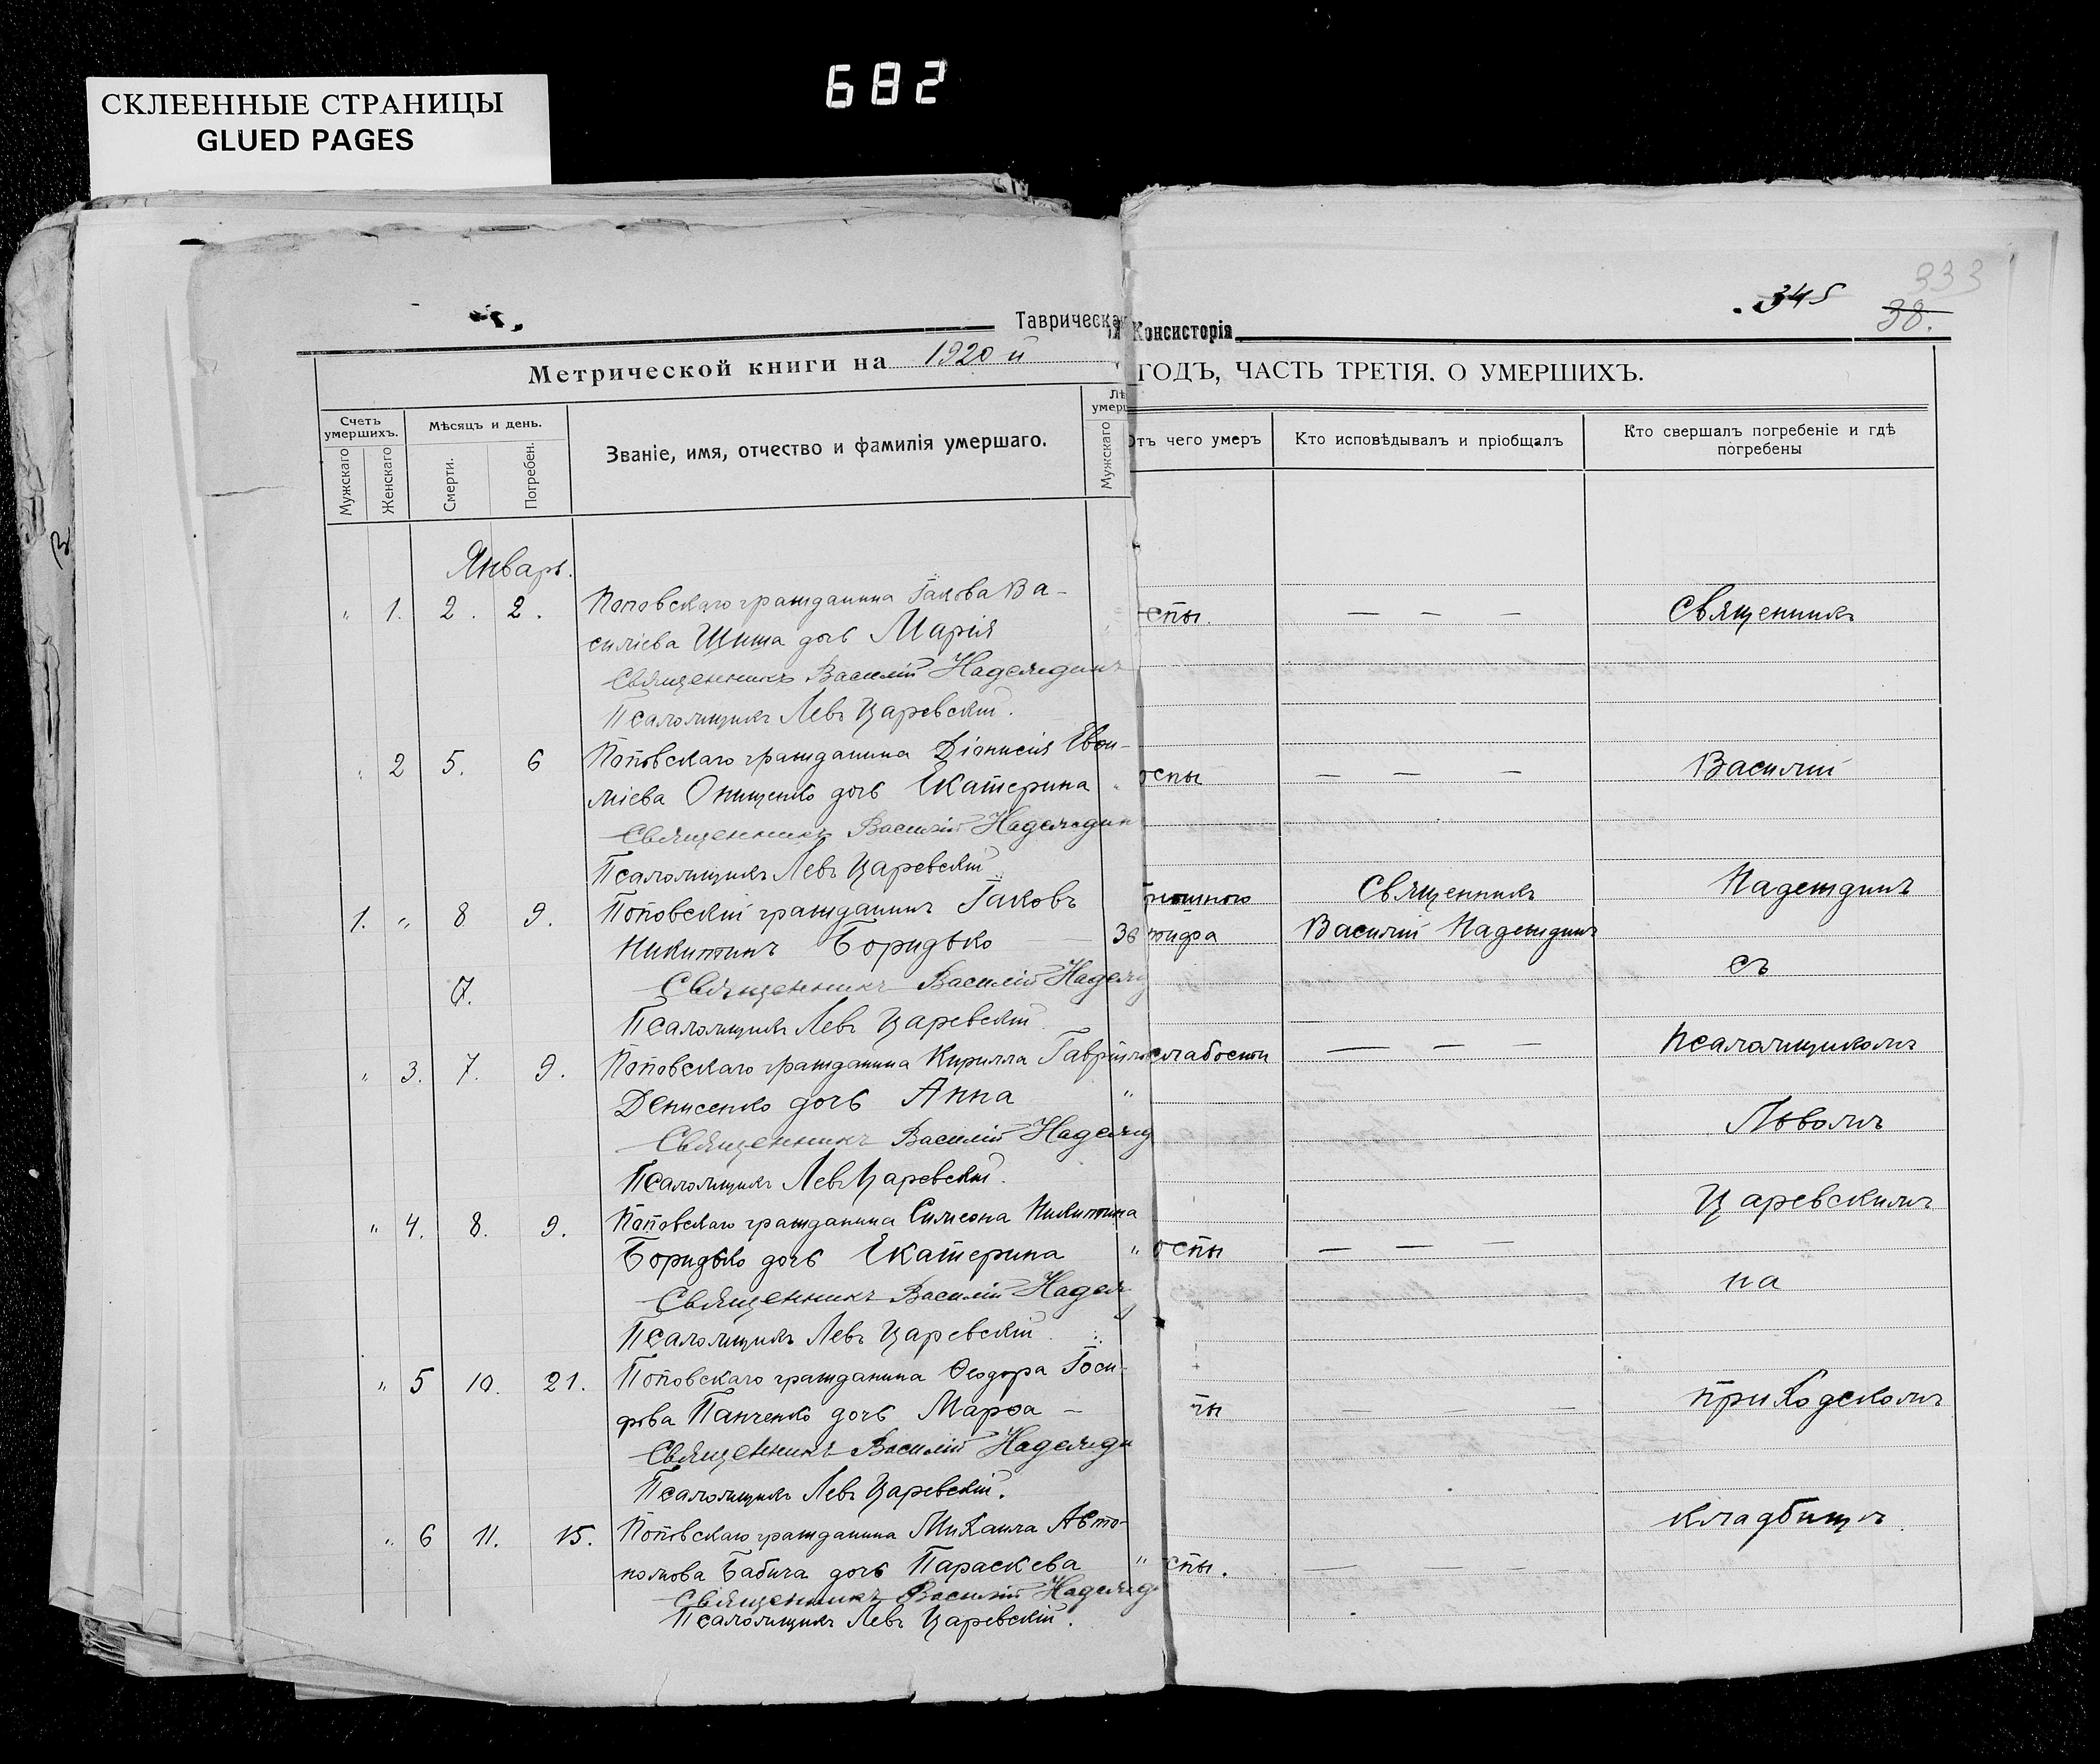 682
СКЛЕЕННЫЕ СТРАНИЦЫ
GLUED PAGES
333
345
38.
Таврическая Консисторія
Метрической книги на 1920 й
ГОДЪ, ЧАСТЬ ТРЕТІЯ. О УМЕРШИХЪ.
Счетъ умершихъ.
Мужскаго
Женскаго
Мѣсяцъ и день.
Смерти.
Погребен.
Званіе, имя, отчество и фамилія умершаго.
Лѣ
умерш
Мужскаго
Отъ чего умеръ
Кто исповѣдывалъ и пріобщалъ
Кто свершалъ погребеніе и гдѣ
погребены
Январь.
" 1. 2. 2. Поповскаго гражданина Іакова Ва-
силіева Шиша дочь Марія
Священникъ Василій Надеждинъ
Псаломщикъ Левъ Царевскій.
" 2 5. 6 Поповскаго гражданина Діонисія
Онищенко дочь Екатерина "
Священникъ Василій Надеждин
Псаломщикъ Левъ Царевскій
1. " 8 9. Поповскій гражданинъ Іаковъ
Никитинъ Боридько 36
7.
Священникъ Василій Надежд
Псаломщикъ Левъ Царевскій.
" 3. 7. 9. Поповскаго гражданина Кирилла
Денисенко дочь Анна "
Священникъ Василій Надежд
Псаломщикъ Левъ Царевскій.
" 4. 8. 9. Поповскаго гражданина Симеона Никитина
Боридько дочь Екатерина "
Священникъ Василій Надеж
Псаломщикъ Левъ Царевскій.
" 5 10. 21. Поповскаго гражданина Ѳеодора Іоси-
фова Панченко дочь Марѳа -
Священникъ Василій Надежди
Псаломщикъ Левъ Царевскій.
" 6 11. 15. Поповскаго гражданина Михаила Авто-
номова Бабича дочь Параскева "
Священникъ Василій Надежд
Псаломщикъ Левъ Царевскій.
спы.
оспы
тифа
слабости
оспы
пы
спы.
Священникъ
Василій Надеждинъ
Священникъ
Василій
Надеждинъ
съ
Псаломщикомъ
Львомъ
Царевскимъ
на
приходскомъ
кладбищѣ.